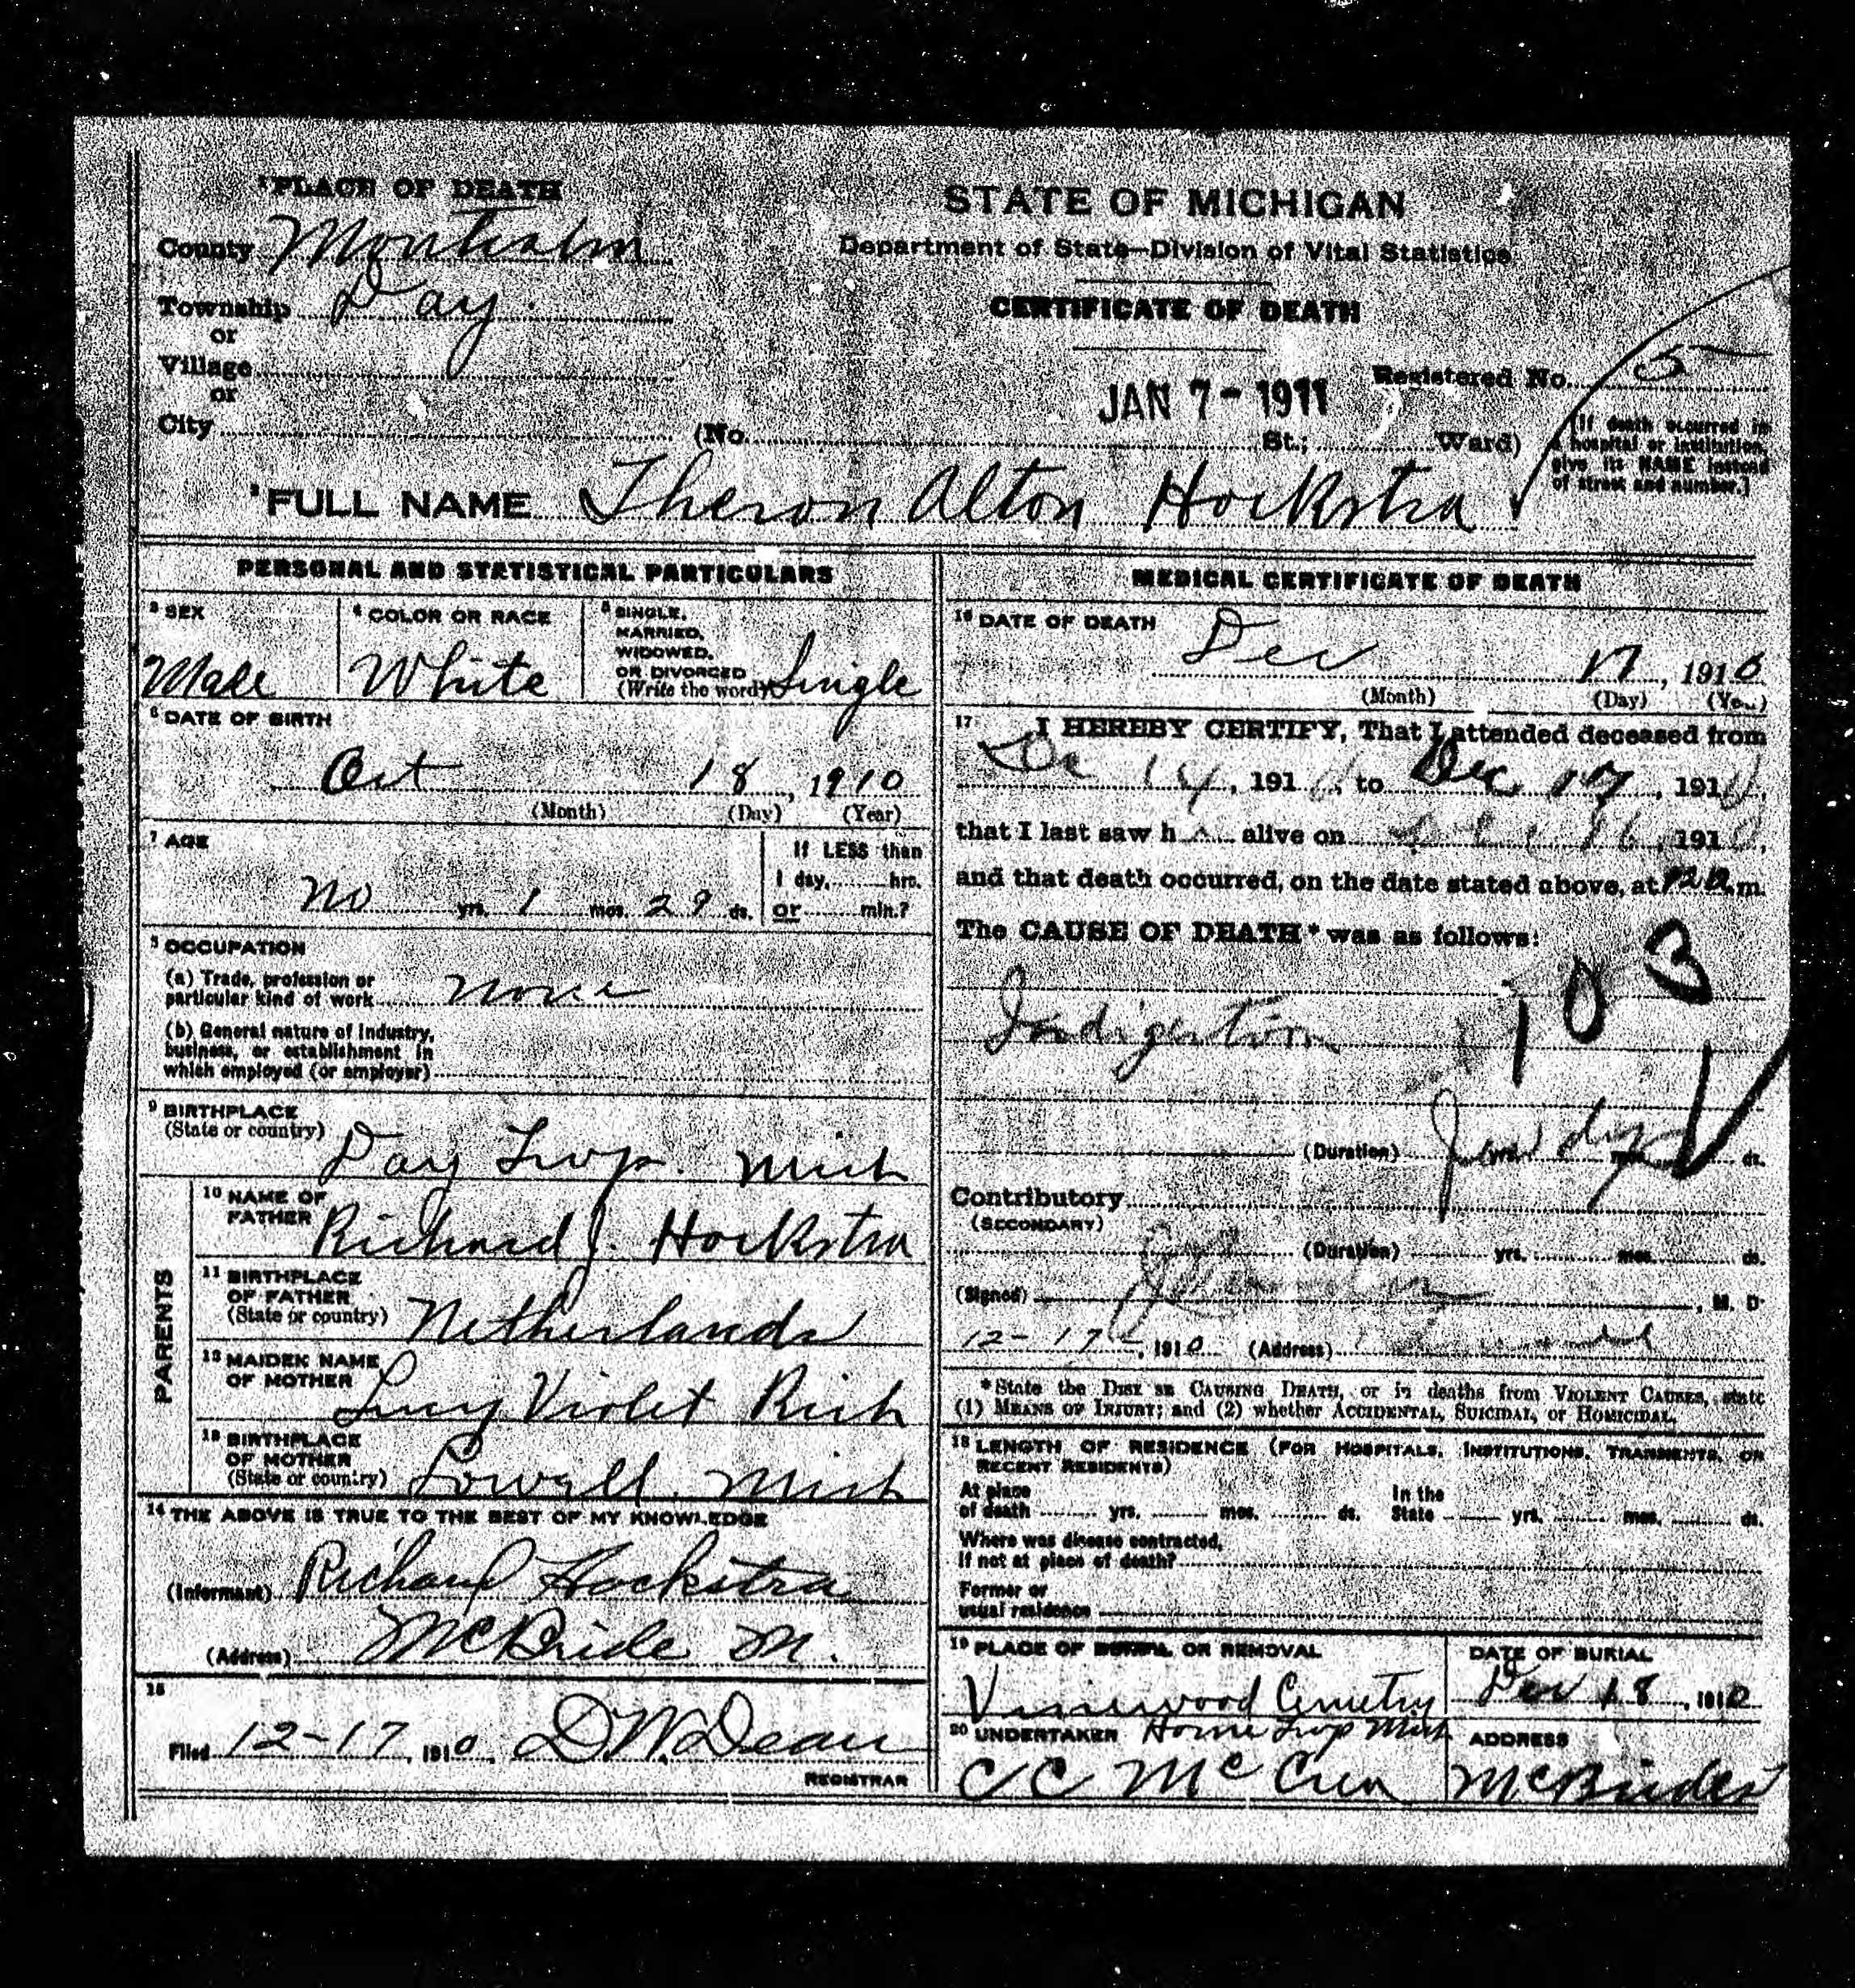 1 PLACE OF DEATH
County Montcalm
Township Day
or
Village
or
City
STATE OF MICHIGAN
Department of State—Division of Vital Statistics
CERTIFICATE OF DEATH
JAN 7- 1911
Registered No. 5
(No. St.; Ward)
[If death occurred in
a hospital or institution,
give its NAME instead
of street and number.]
2 FULL NAME Theron Alton Hoekstra
PERSONAL AND STATISTICAL PARTICULARS
3 SEX
Male
4 COLOR OR RACE
White
5 SINGLE,
MARRIED,
WIDOWED,
OR DIVORCED
(Write the word) Single
6 DATE OF BIRTH
Oct 18, 1910
(Month) (Day) (Year)
7 AGE
No yrs. 1 mos. 29 ds.
If LESS than
1 day, hrs.
or min.?
8 OCCUPATION
(a) Trade, profession or
particular kind of work None
(b) General nature of industry,
business, or establishment in
which employed (or employer)
9 BIRTHPLACE
(State or country)
Day Twp. Mich
PARENTS
10 NAME OF
FATHER Richard J. Hoekstra
11 BIRTHPLACE
OF FATHER
(State or country) Netherlands
12 MAIDEN NAME
OF MOTHER
Lucy Violet Rich
13 BIRTHPLACE
OF MOTHER
(State or country) Lowell Mich
14 THE ABOVE IS TRUE TO THE BEST OF MY KNOWLEDGE
(Informant) Richard Hoekstra
(Address) McBride M.
15
Filed 12-17, 1910, D W Dean
REGISTRAR
MEDICAL CERTIFICATE OF DEATH
16 DATE OF DEATH
Dec 17, 1910
(Month) (Day) (Year)
17 I HEREBY CERTIFY, That I attended deceased from
Dec 14, 1910, to Dec 17, 1910,
that I last saw h alive on 16, 1910,
and that death occurred, on the date stated above, at m.
The CAUSE OF DEATH* was as follows:
103
Indigestion
(Duration) yrs. mos. ds.
Contributory
(SECONDARY)
(Duration) yrs. mos. ds.
(Signed) , M. D.
12-17, 1910 (Address)
*State the DISEASE CAUSING DEATH, or in deaths from VIOLENT CAUSES, state
(1) MEANS OF INJURY; and (2) whether ACCIDENTAL, SUICIDAL, or HOMICIDAL.
18 LENGTH OF RESIDENCE (FOR HOSPITALS, INSTITUTIONS, TRANSIENTS, OR
RECENT RESIDENTS)
At place
of death yrs. mos. ds.
In the
State yrs. mos. ds.
Where was disease contracted,
If not at place of death?
Former or
usual residence
19 PLACE OF BURIAL OR REMOVAL
Vinewood Cemetry
Home Twp Mich
DATE OF BURIAL
Dec 18, 1910
20 UNDERTAKER
C C McCrea
ADDRESS
McBrides